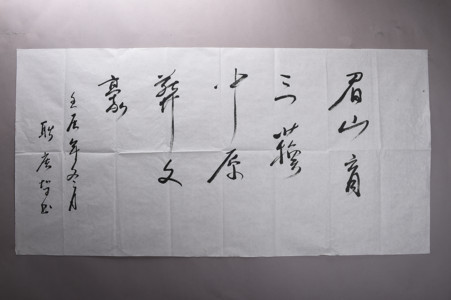 眉山育
三蘇
中原
葬文
豪
壬辰年冬月
耿书